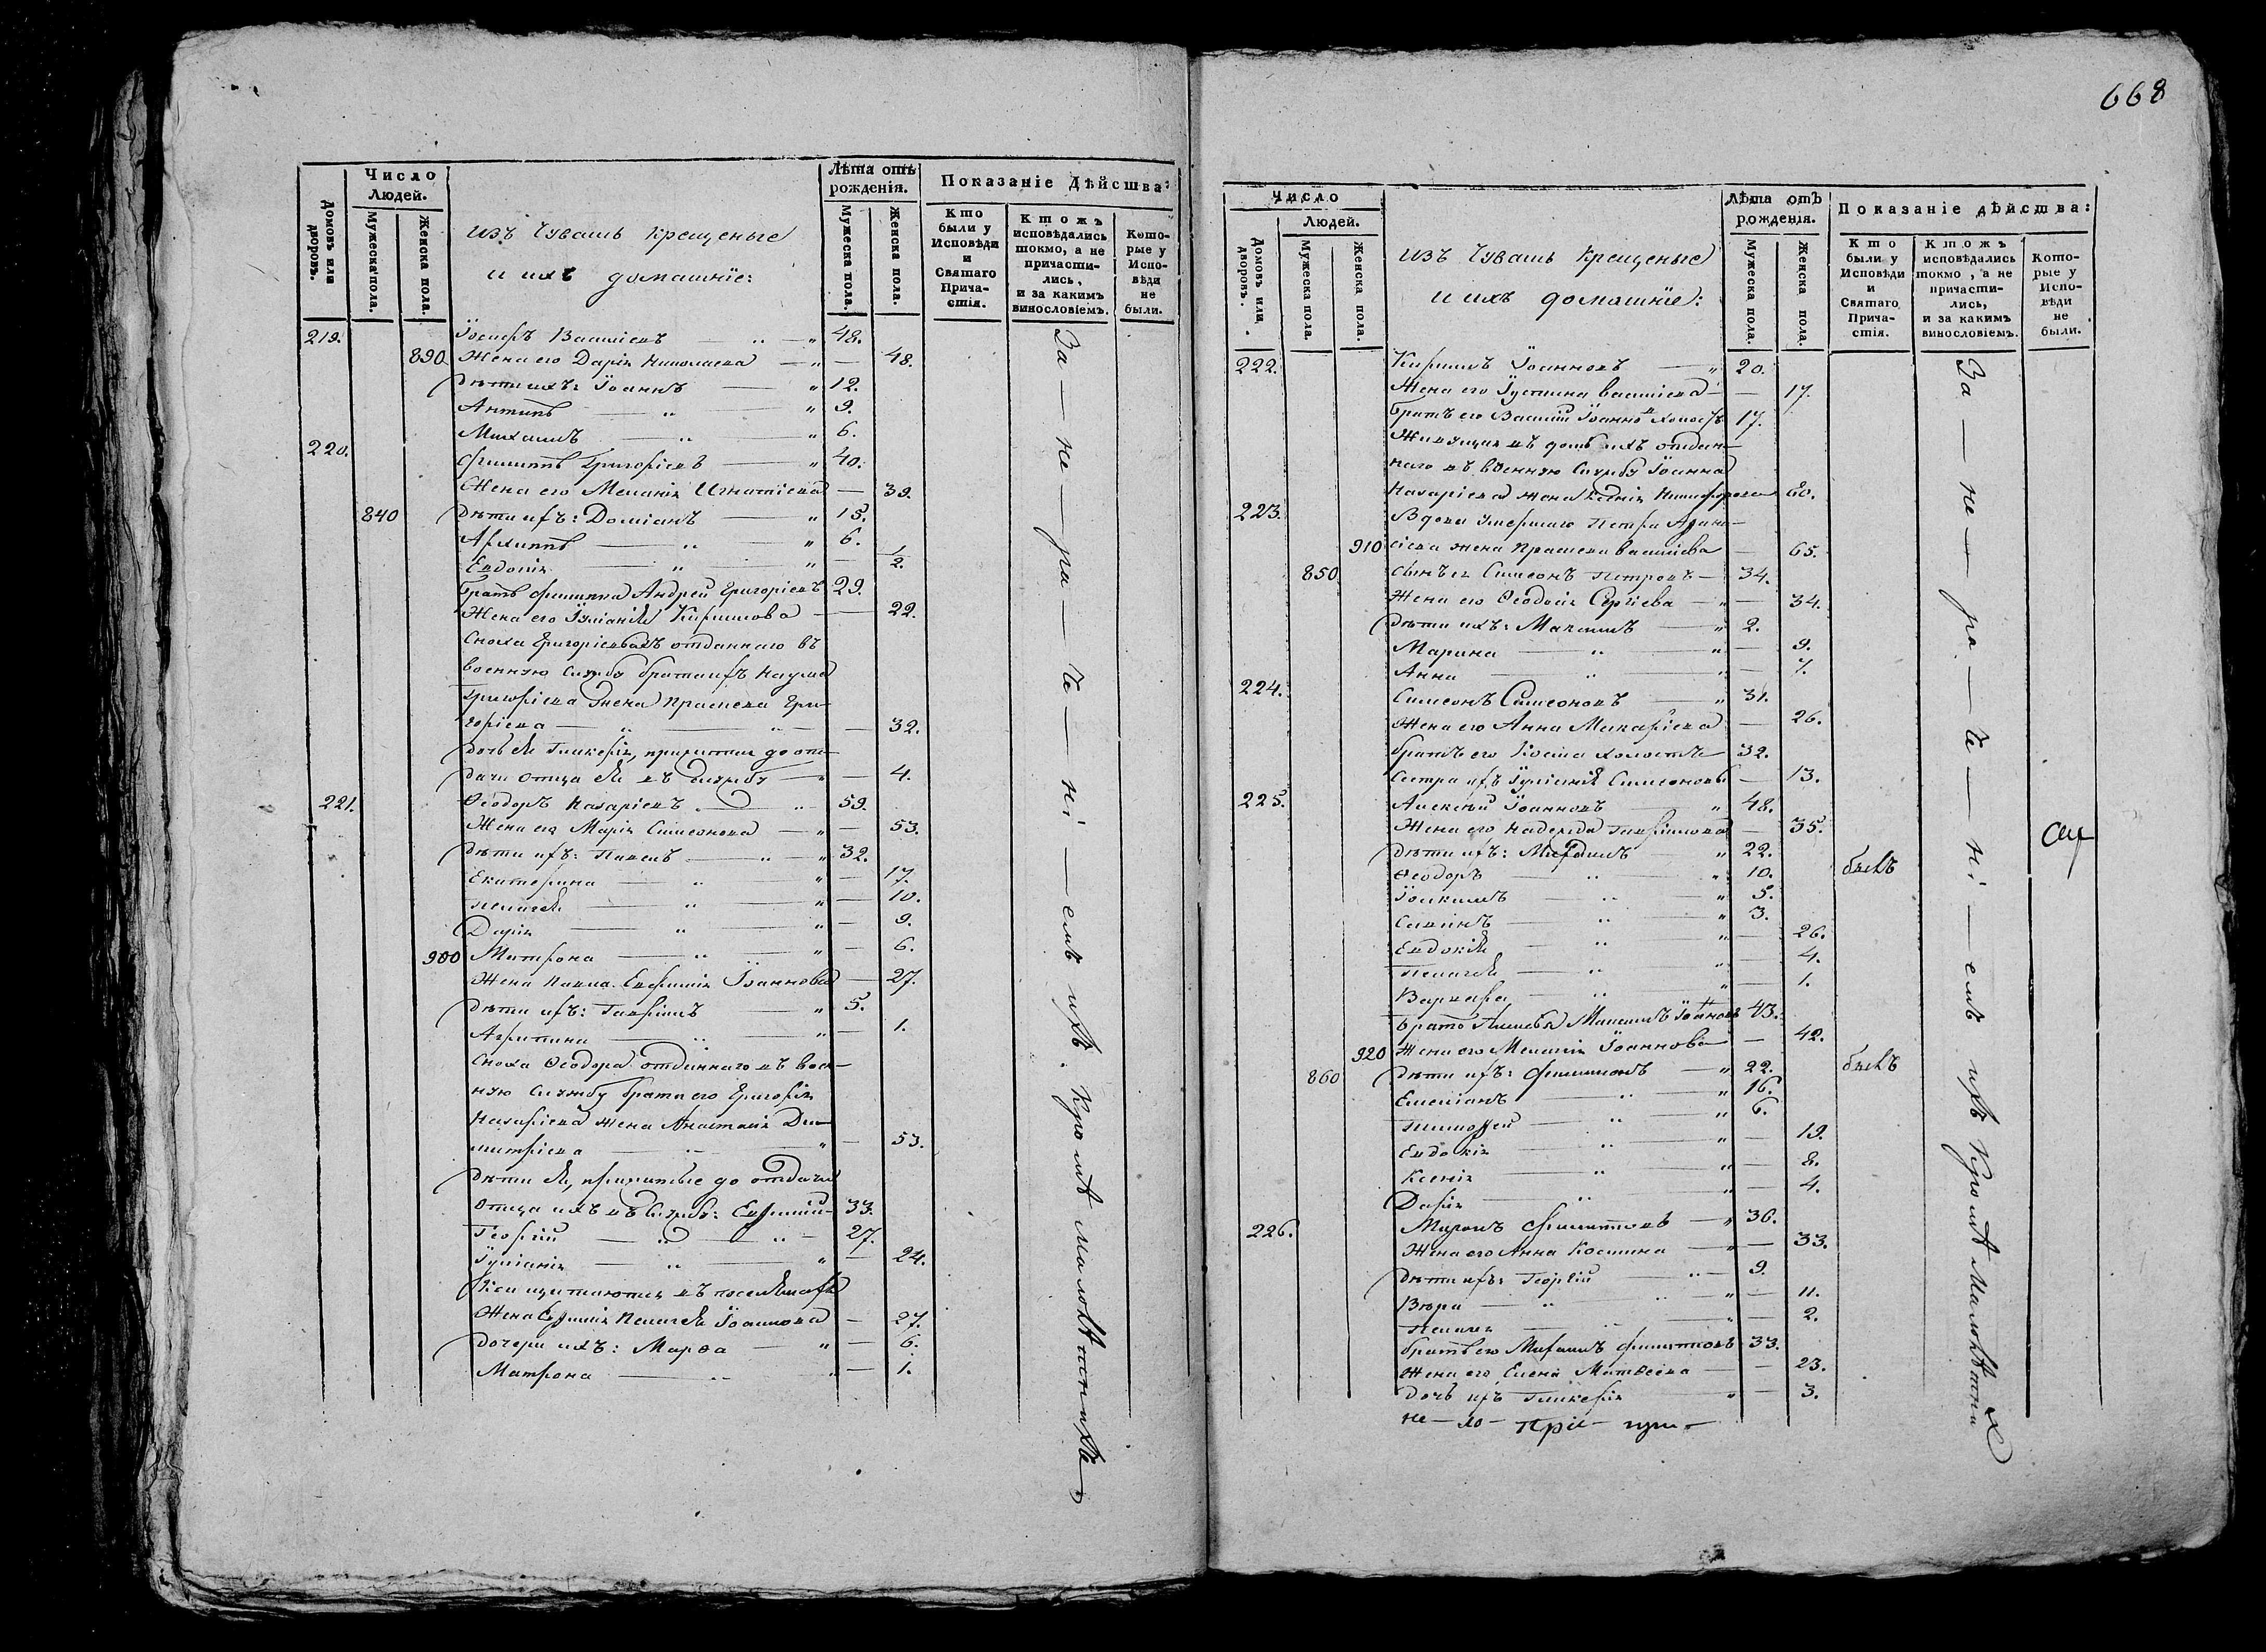 Число Людей.
Домовъ или дворовъ.
Мужеска пола.
Женска пола.
изъ Чувашъ крещеные
и ихъ домашнїе:
Лѣта отъ рожденія.
Мужеска пола.
Женска пола.
Показаніе Дѣйства:
Кто были у Исповѣди и Святаго Причастія.
Ктожъ исповѣдались токмо, а не причастились, и за какимъ винословіемъ.
Которые у Исповѣди не были.
219. Їосифъ Василіевъ 48.
890. Жена его Дарія Николаева 48.
Дѣти ихъ: Їоаннъ 12.
Антипъ 9.
Михаилъ 6.
220. Филиппъ Григорїевъ 40.
Жена его Меланія Игнатїева 39.
840 Дѣти ихъ: Домїанъ 15.
Архиппъ 6.
Евдокія 2.
Братъ Филиппа Андрей Григорїевъ 29.
Жена его Їулїанїя Кирилова 22.
Сноха Григорїевыхъ отданнаго въ
военную службу брата ихъ Наума
Григорїева жена Праскева Гри-
горїева 32.
дочь ея Гликерїя, прижитая до от-
дачи отца ея въ службу 4.
221. Ѳеодоръ Назарїевъ 59.
Жена его Марія Симеонова 53.
Дѣти ихъ: Павелъ 32.
Екатерина 17.
Пелагея 10.
Дарія 9.
900 Матрона 6.
Жена Павла Евфимія Їоаннова 27.
Дѣти ихъ: Гаврїилъ 5.
Агрипина 1.
Сноха Ѳеодора отданнаго въ воен-
ную службу брата его Григорїя
Назарїева жена Анастасія Ди-
митрїева 53.
Дѣти ея, прижитые до отдачи
отца ихъ въ службу: Евфимій 33.
Георгїй 27.
Їулїанія 24.
Жена Евфимія Пелагея Їоаннова 27.
дочери ихъ: Марѳа 6.
Матрона 1.
За — не — ра — че — нї — емъ ихъ. Кромѣ малолѣтнихъ
668
Число Людей.
Домовъ или дворовъ.
Мужеска пола.
Женска пола.
изъ Чувашъ крещеные
и ихъ домашнїе:
Лѣта отъ рожденія.
Мужеска пола.
Женска пола.
Показаніе дѣйства:
Кто были у Исповѣди и Святаго Причастія.
Ктожъ исповѣдались токмо, а не причастились, и за какимъ винословіемъ.
Которые у Исповѣди не были.
222. Кирилъ Їоанновъ 20.
Жена его Їустина Василїева 17.
братъ его Василій Їоанновъ холостъ 17.
Живущая въ домѣ ихъ отдан-
наго въ военную службу Їоанна
Назарїева жена Ксенія Никифорова 60.
223. Вдова умершаго Петра Аѳана-
910 сїева жена Праскева Василїева 65.
850 сынъ ея Симеонъ Петровъ 34.
Жена его Ѳеодосія Сергїева 34.
Дѣти ихъ: Максимъ 2.
Марина 9.
Анна 7.
224. Симеонъ Симеоновъ 31.
Жена его Анна Макарїева 26.
братъ его Косма холостъ 32.
Сестра ихъ Їулїанїя Симеонова 13.
225. Алексѣй Їоанновъ 48.
Жена его Надежда Гаврїилова 35.
Дѣти ихъ: Михаилъ 22. былъ
Ѳеодоръ 10.
Їоакимъ 5.
Савинъ 3.
Евдокїя 26.
Пелагея 4.
Варвара 1.
братъ Алексѣя Максимъ Їоанновъ 43.
920 Жена его Меланія Їоаннова 42.
860 Дѣти ихъ: Филимонъ 22. былъ
Емелїанъ 16.
Тимоѳей 6.
Евдокія 19.
Ксенія 8.
Дарія 4.
226. Миронъ Филиптовъ 36.
Жена его Анна Космина 33.
Дѣти ихъ: Георгїй 9.
Вѣра 11.
Пелагея 2.
братъ его Михаилъ Филиптовъ 33.
Жена его Елена Матвѣева 23.
Дочь ихъ Гликерїя 3.
За — не — ра — че — нї — емъ ихъ Кромѣ Малолѣтнихъ